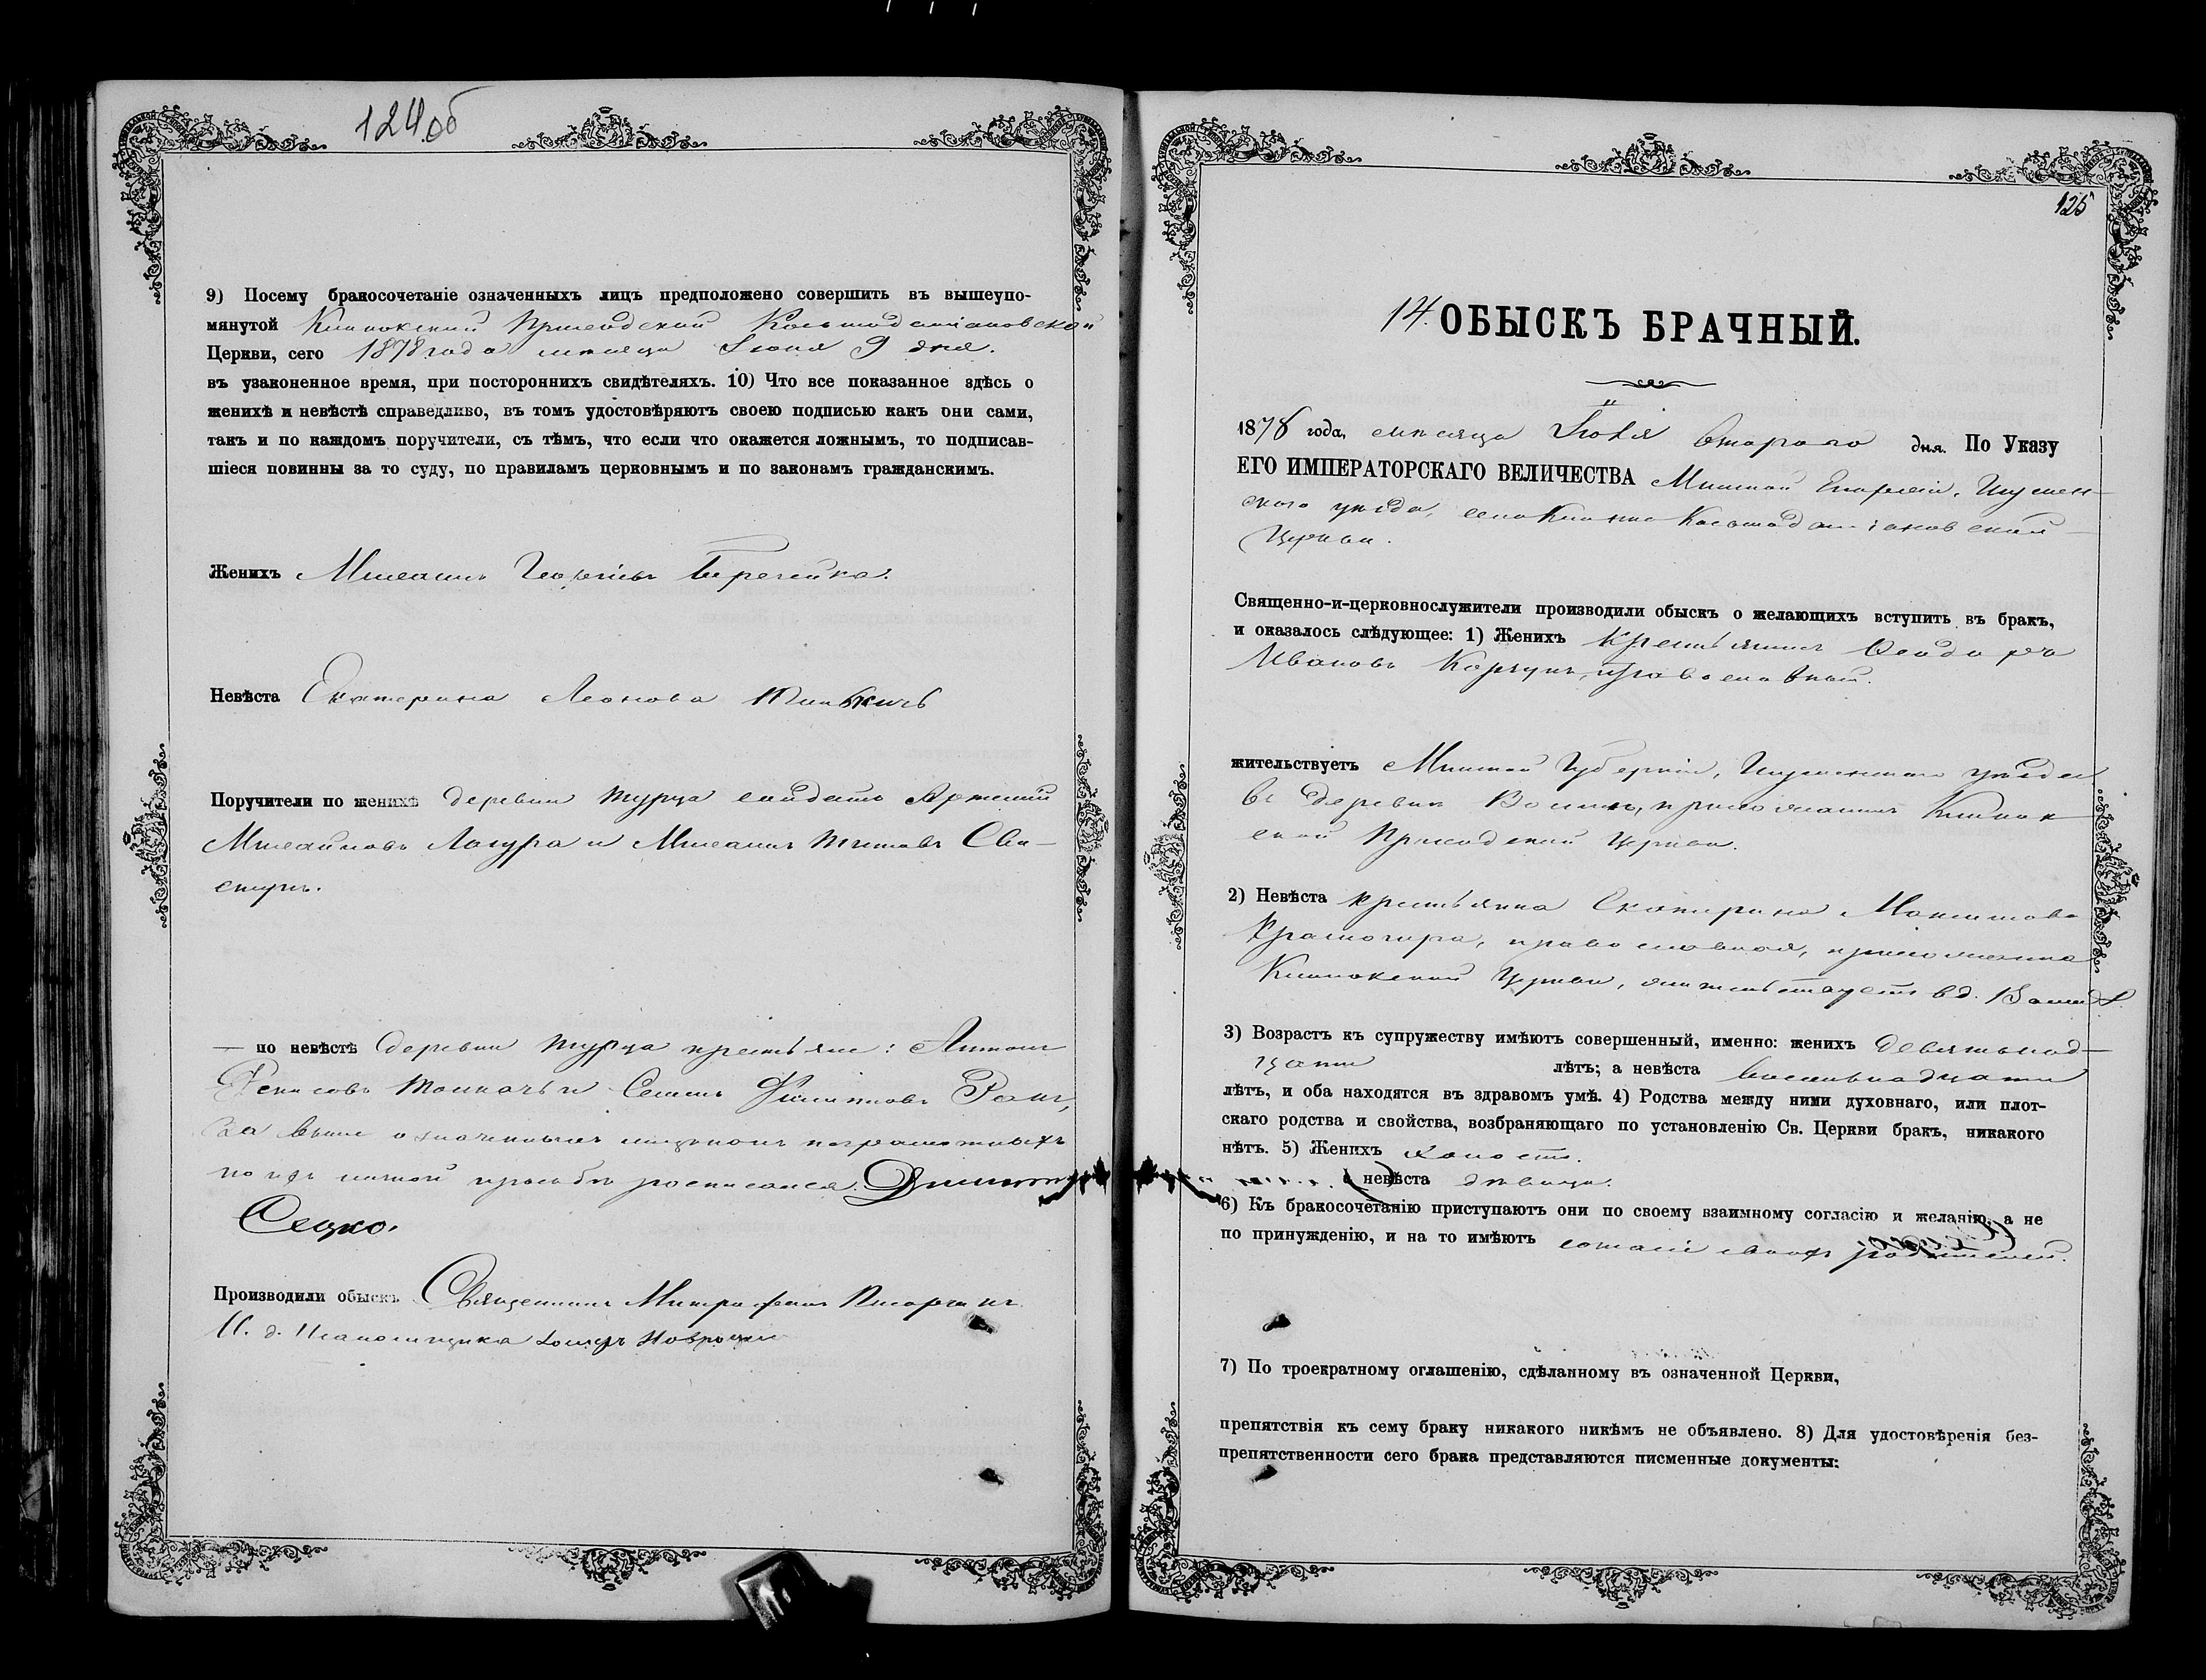 124 об
9) Посему бракосочетаніе означенныхъ лицъ предположено совершить въ вышеупо-
мянутой Клинокской Приходской Косьмодаміановской
Церкви, сего 1878 года мѣсяца Іюня 9 дня.
въ узаконенное время, при постороннихъ свидѣтеляхъ. 10) Что все показанное здѣсь о
женихѣ и невѣстѣ справедливо, въ томъ удостовѣряютъ своею подписью какъ они сами,
такъ и по каждомъ поручители, съ тѣмъ, что если что окажется ложнымъ, то подписав-
шіеся повинны за то суду, по правиламъ церковнымъ и по законамъ гражданскимъ.
Женихъ Михаилъ Георгіевъ
Невѣста Екатерина Леонова
Поручители по женихѣ деревни Турца солдатъ Артемій
Михайловъ и Михаилъ Титовъ Сви-
стунъ.
— по невѣстѣ деревни Турца крестьяне: Антонъ
Денисовъ и Семенъ Филипповъ
За выше означенныхъ неграмотныхъ
по ихъ личной просьбѣ росписался
Сецко.
Производили обыскъ Священникъ Митрофанъ
И. д. Псаломщика
125
14. ОБЫСКЪ БРАЧНЫЙ.
1878 года, мѣсяца Іюля втораго дня. По Указу
ЕГО ИМПЕРАТОРСКАГО ВЕЛИЧЕСТВА Минской Епархіи, Игумен-
скаго уѣзда, села Клинка Косьмодаміановской
Церкви.
Священно-и-церковнослужители производили обыскъ о желающихъ вступить въ бракъ,
и оказалось слѣдующее: 1) Женихъ Крестьянинъ Ѳеодоръ
Ивановъ Коржунъ, православный.
жительствуетъ Минской Губерніи, Игуменскаго уѣзда
въ деревни прихожанинъ Клинок-
ской Приходской Церкви.
2) Невѣста крестьянка Екатерина Максимова
православная, прихожанка
Клинокской Церкви, жительствуетъ въ д.
3) Возрастъ къ супружеству имѣютъ совершенный, именно: женихъ девятьнад-
цати лѣтъ; а невѣста восемьнадцати
лѣтъ, и оба находятся въ здравомъ умѣ. 4) Родства между ними духовнаго, или плот-
скаго родства и свойства, возбраняющаго по установленію Св. Церкви бракъ, никакого
нѣтъ. 5) Женихъ холостъ.
а невѣста дѣвица.
6) Къ бракосочетанію приступаютъ они по своему взаимному согласію и желанію, а не
по принужденію, и на то имѣютъ согласіе своихъ родителей.
7) По троекратному оглашенію, сдѣланному въ означенной Церкви,
препятствія къ сему браку никакого никѣмъ не объявлено. 8) Для удостовѣренія без-
препятственности сего брака представляются писменные документы: